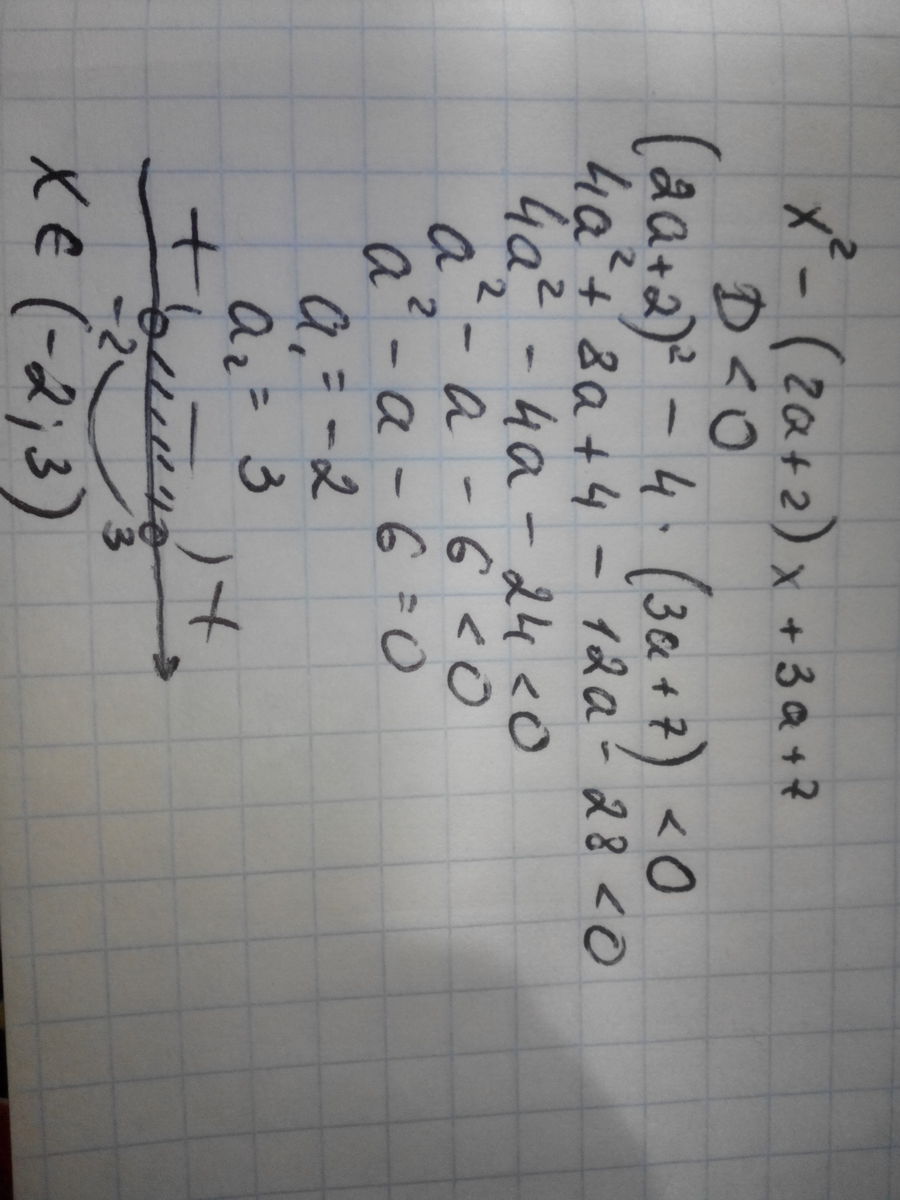 x² - (2a+2)x + 3a+7
D < 0
(2a+2)² - 4·(3a+7) < 0
4a² + 8a + 4 - 12a - 28 < 0
4a² - 4a - 24 < 0
a² - a - 6 < 0
a² - a - 6 = 0
a₁ = -2
a₂ = 3
+ - +
-2 3
x ∈ (-2; 3)